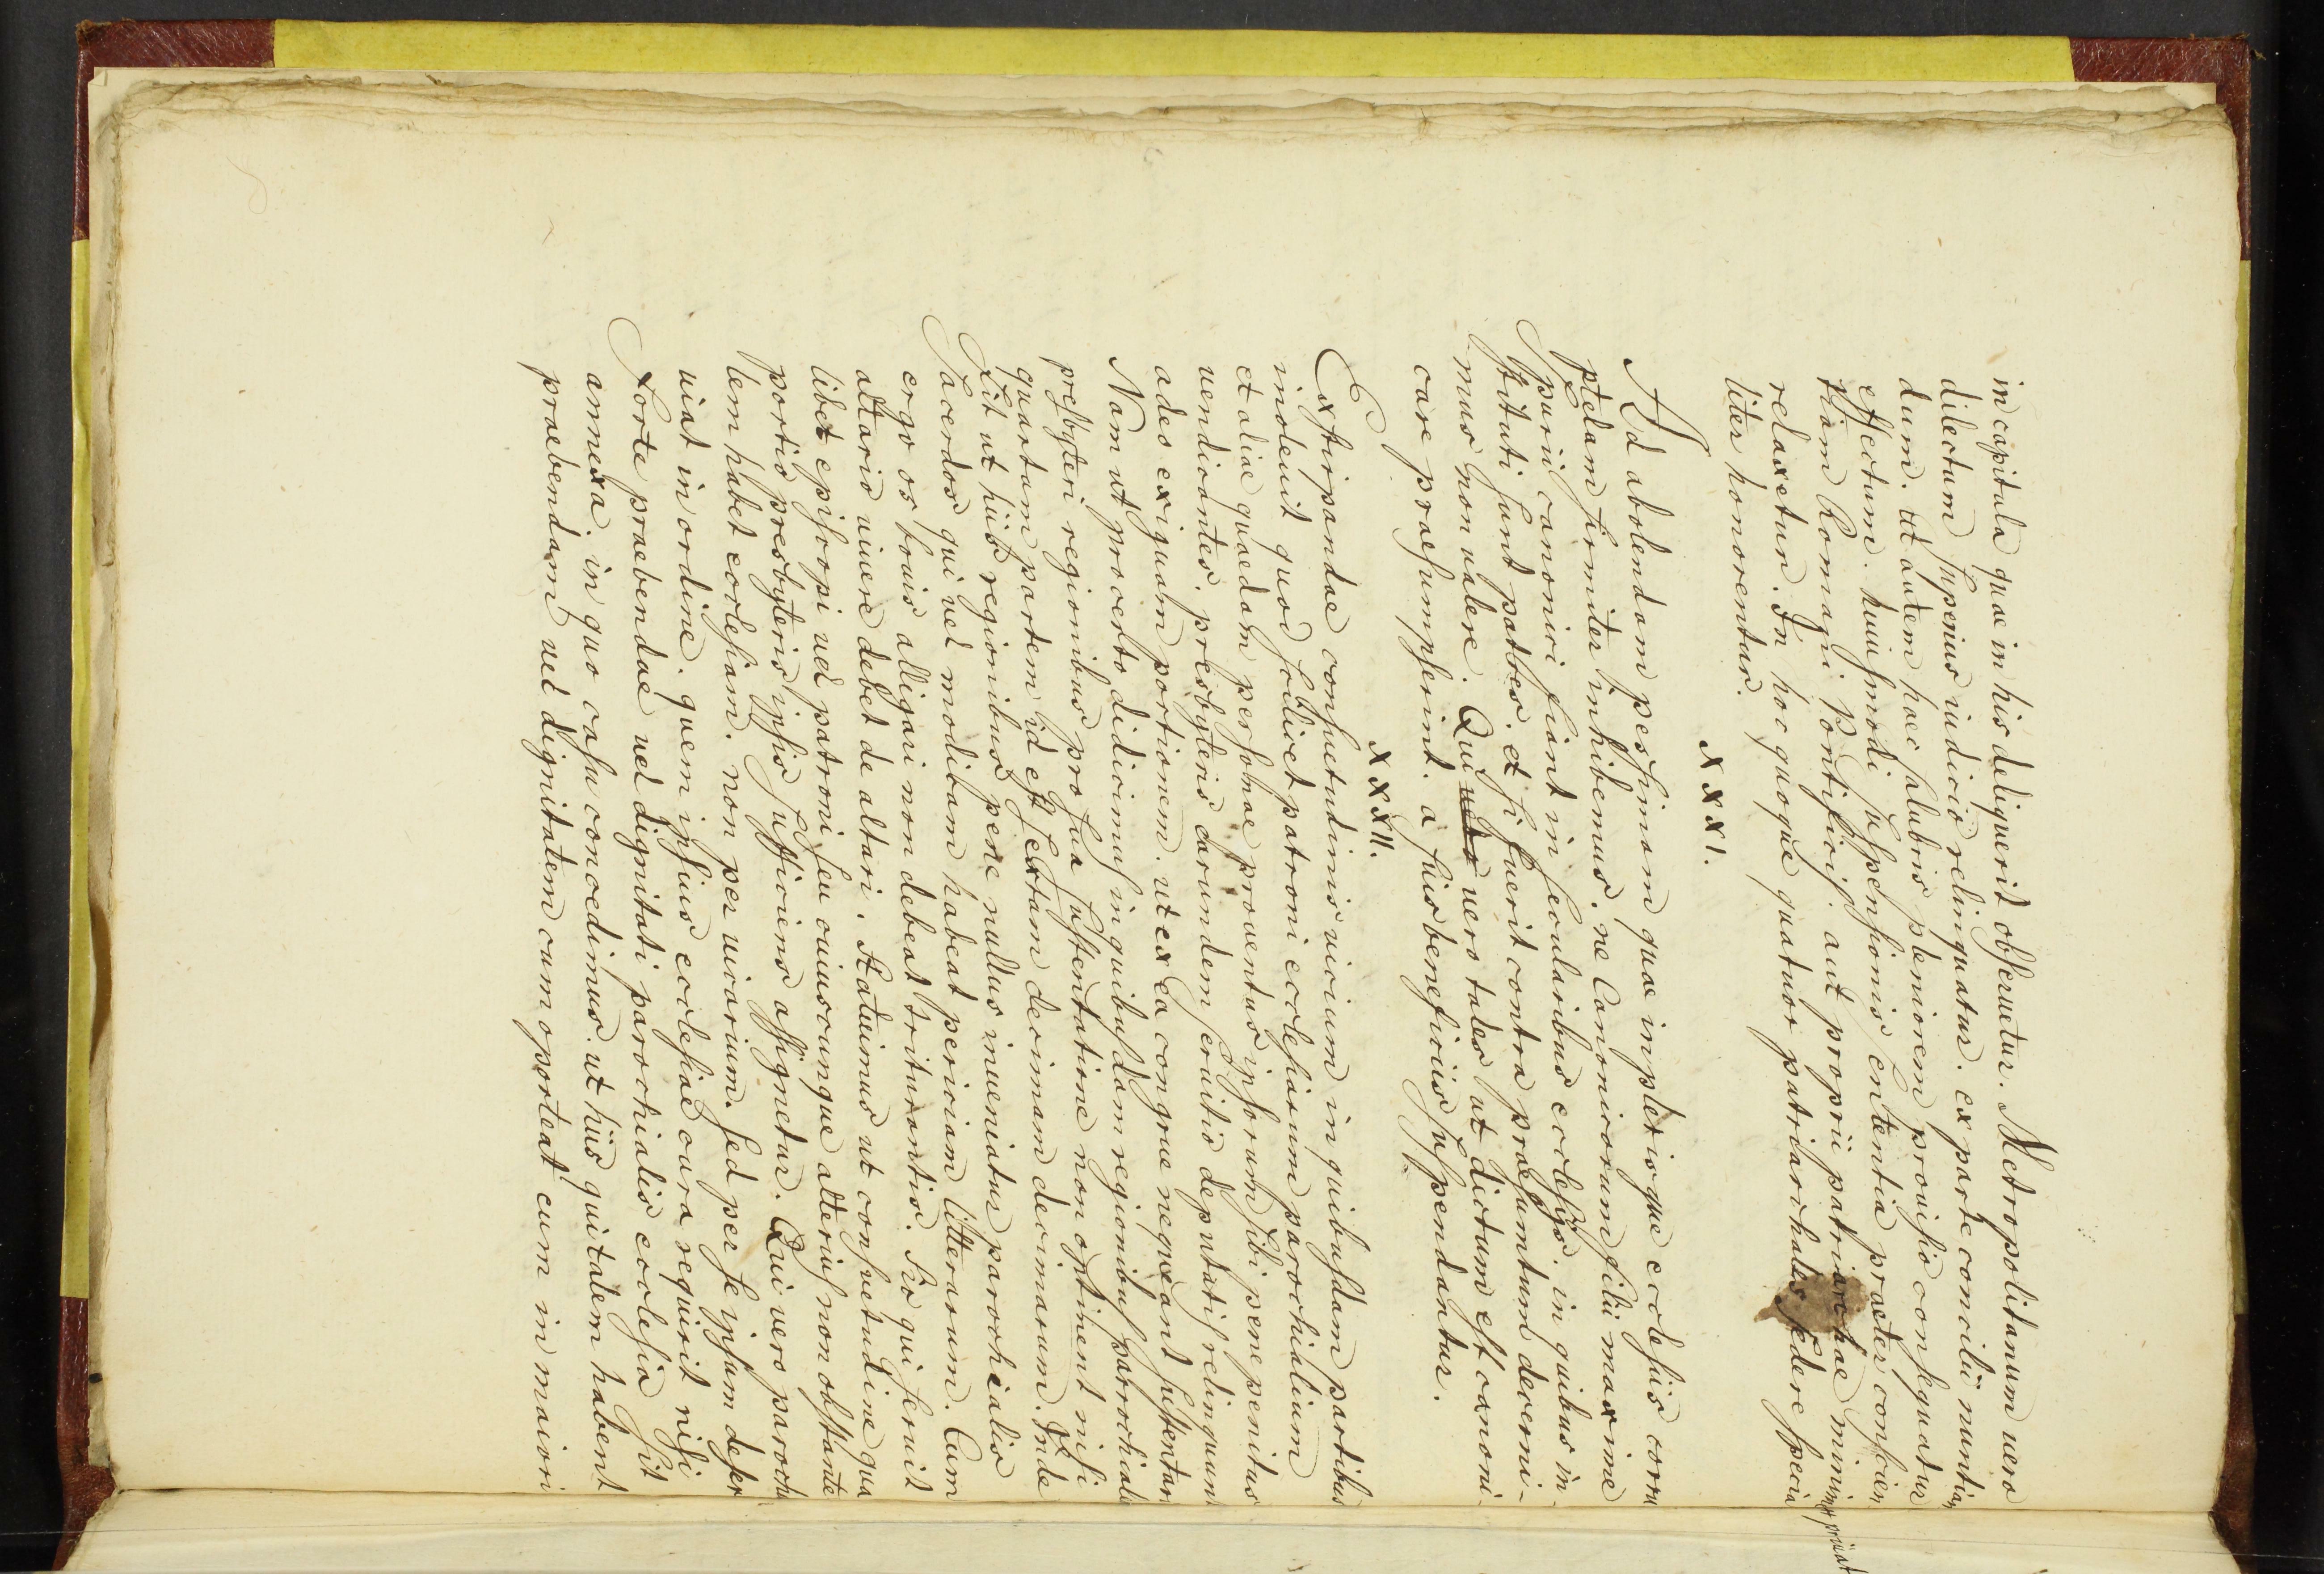 in capitula quae in his deliquerit obseruetur. Metropolitanum uero
dilectum superius iudicio relinquatur. ex parte concilii nuntian
dum. Ut autem haec salubris pleniorem prouisio consequatur
effectum. huiusmodi suspensionis sententia praeter conscien
tiam Romani Pontificis. aut proprii patriarchae minime priuat
relaxetur. In hoc quoque quatuor patriarchales sedere specia
liter honorentur.
XXXI.
Ad abolendam pessimam quae in plerisque ecclesiis corru
ptelam firmiter inhibemus. ne Canonicorum filii maxime
spurii canonici fiant in secularibus ecclesiis. in quibus in-
stituti sunt patres. et si fuerit contra praesumtum decerni-
mus non ualere. Qui uero tales ut dictum est canoni-
care praesumpserint. a suis beneficiis suspendantur.
XXXII.
Exstirpandae consuetudinis uicium in quibusdam partibus
inoleuit quod scilicet patroni ecclesiarum parochialium
et aliae quaedam personae prouentus ipsorum sibi pene penitus
uendicantes. presbyteris earundem seruitio deputatis relinquunt
adeo exiguam portionem. ut ex ea congrue nequeant sustentari
Nam ut pro certo didicimus in quibusdam regionibus parrochiales
presbyteri regionibus pro sua sustentatione non optinent nisi
quartam partem id est sextam decimam decimarum. Inde
Fit ut hiis regionibus pene nullus inueniatur parrochialis
Sacerdos qui uel modicam habeat periciam litterarum. Cum
ergo os bouis alligari non debeat triturantis. sic qui seruit
altario uiuere debet de altari. Statuimus ut consuetudine qua
libet episcopi uel patroni seu cuiuscunque alterius non obstante
portio presbyteris ipsis sufficiens assignetur. Qui uero parochi
lem habet ecclesiam. non per uicarium. sed per se ipsum deser
uiat in ordine. quem ipsius ecclesiae cura requirit nisi
forte praebendae uel dignitati parochialis ecclesia sit
annexa. in quo casu concedimus. ut hiis qui talem habent
praebendam uel dignitatem cum oporteat eum in maiori